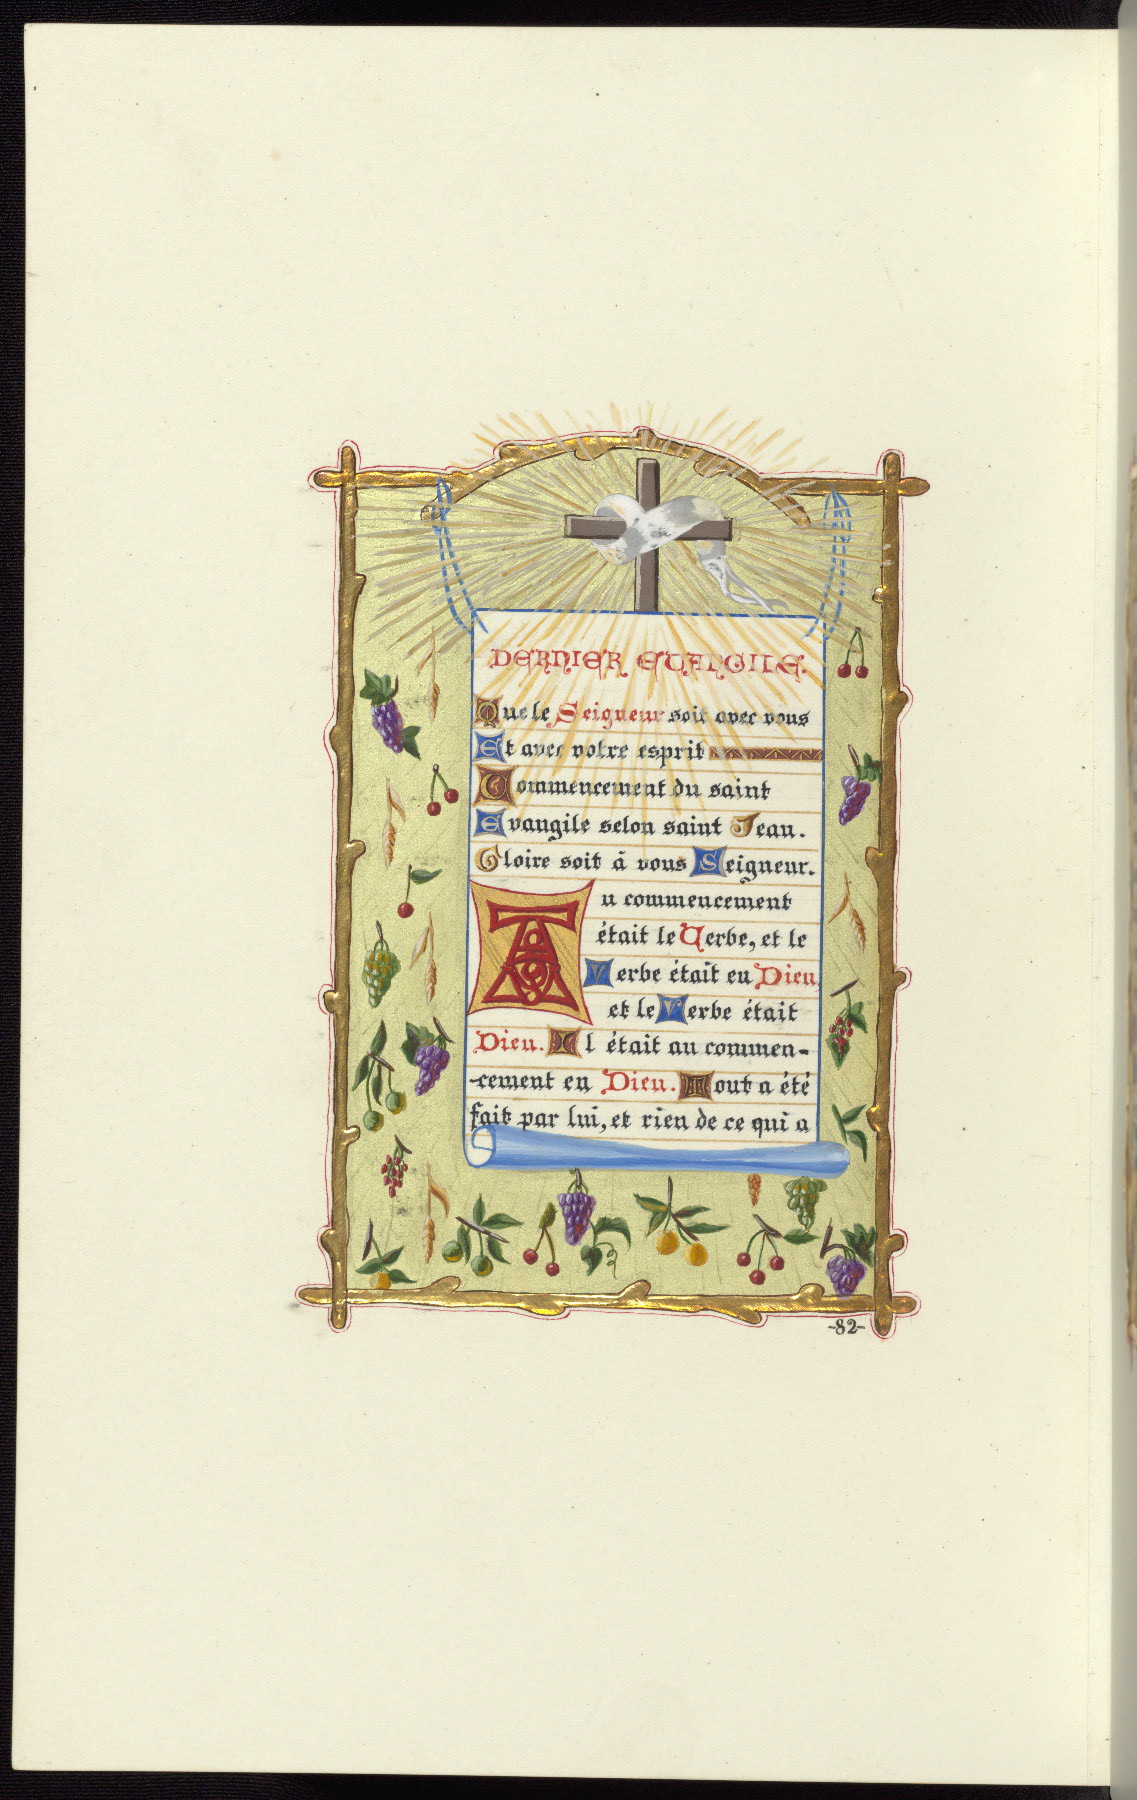 DERNIER EVANGILE.
Que le Seigneur soit avec vous
Et avec votre esprit
Commencement du saint
Evangile selon saint Jean.
Gloire soit à vous Seigneur.
Au commencement
était le Verbe, et le
Verbe était en Dieu,
et le Verbe était
Dieu. Il était au commen-
-cement en Dieu. Tout a été
fait par lui, et rien de ce qui a
-82-